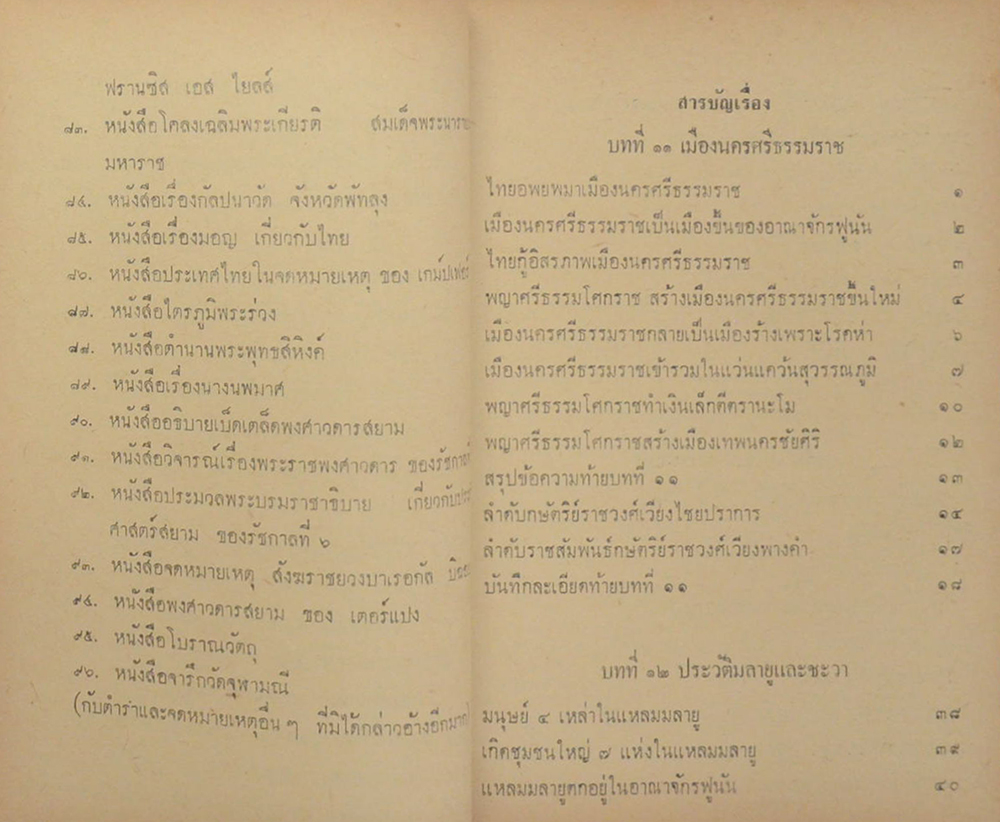 ฟรานซิส เอส ไยลส์
๘๓. หนังสือโคลงเฉลิมพระเกียรติ สมเด็จพระนาราย
มหาราช
๘๔. หนังสือเรื่องกัลปนาวัด จังหวัดพัทลุง
๘๕. หนังสือเรื่องมอญ เกี่ยวกับไทย
๘๖. หนังสือประเทศไทยในจดหมายเหตุ ของ เกมป์เฟอร์
๘๗. หนังสือไตรภูมิพระร่วง
๘๘. หนังสือตำนานพระพุทธสิหิงค์
๘๙. หนังสือเรื่องนางนพมาศ
๙๐. หนังสืออธิบายเบ็ดเตล็ดพงศาวดารสยาม
๙๑. หนังสือวิจารณ์เรื่องพระราชพงศาวดาร ของรัชกาลที่
๙๒. หนังสือประมวลพระบรมราชาธิบาย เกี่ยวกับ
ศาสตร์สยาม ของรัชกาลที่ ๖
๙๓. หนังสือจดหมายเหตุ สังฆราชยวงบาเรอกัส
๙๔. หนังสือพงศาวดารสยาม ของ เตอร์แปง
๙๕. หนังสือโบราณวัตถุ
๙๖. หนังสือจารึกวัดจุฬามณี
(กับตำราและจดหมายเหตุอื่น ๆ ที่มิได้กล่าวอ้างอีกมาก)
สารบัญเรื่อง
บทที่ ๑๑ เมืองนครศรีธรรมราช
ไทยอพยพมาเมืองนครศรีธรรมราช ๑
เมืองนครศรีธรรมราชเป็นเมืองขึ้นของอาณาจักรฟูนัน ๒
ไทยกู้อิสรภาพเมืองนครศรีธรรมราช ๓
พญาศรีธรรมโศกราช สร้างเมืองนครศรีธรรมราชขึ้นใหม่ ๔
เมืองนครศรีธรรมราชกลายเป็นเมืองร้างเพราะโรคห่า ๖
เมืองนครศรีธรรมราชเข้ารวมในแว่นแคว้นสุวรรณภูมิ ๗
พญาศรีธรรมโศกราชทำเงินเล็กตีตรานะโม ๑๐
พญาศรีธรรมโศกราชสร้างเมืองเทพนครชัยศิริ ๑๒
สรุปข้อความท้ายบทที่ ๑๑ ๑๓
ลำดับกษัตริย์ราชวงศ์เวียงไชยปราการ ๑๔
ลำดับราชสัมพันธ์กษัตริย์ราชวงศ์เวียงพางคำ ๑๗
บันทึกละเอียดท้ายบทที่ ๑๑ ๑๘
บทที่ ๑๒ ประวัติมลายูและชะวา
มนุษย์ ๔ เหล่าในแหลมมลายู ๓๘
เกิดชุมชนใหญ่ ๗ แห่งในแหลมมลายู ๓๙
แหลมมลายูตกอยู่ในอาณาจักรฟูนัน ๔๐